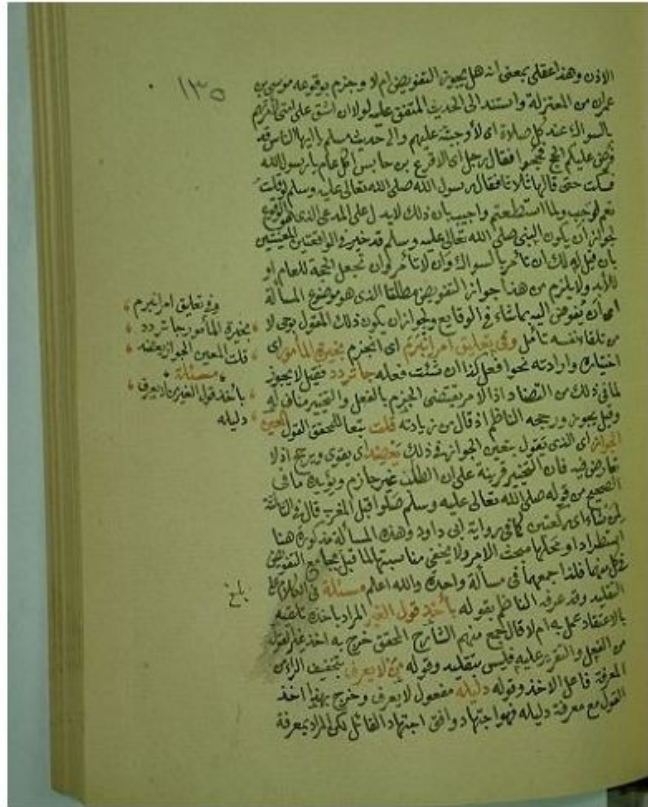 ١٣٥
الاذن وهذا عقلي بمعنى انه هل يجوز التفويض ام لا وجزم بوقوعه موسى بن
عمران من المعتزلة واستند الى الحديث المتفق عليه لولا ان اشق على امتي لامرتهم
بالسواك عند كل صلاة اى لاوجبته عليهم والى حديث مسلم يا ايها الناس قد
فرض عليكم الحج فحجوا فقال رجل اى الاقرع بن حابس اكل عام يا رسول الله
فسكت حتى قالها ثلاثا فقال رسول الله صلى الله تعالى عليه وسلم لو قلت
نعم لوجب ولما استطعتم واجيب بان ذلك لا يدل على المدعى الذى هو الوقوع
لجواز ان يكون النبى صلى الله تعالى عليه وسلم قد خير فى الواقعتين المعينتين
بان قيل له لك ان تامر بالسواك وان لا تامر وان تجعل الحجة للعام او
للابد ولا يلزم من هذا جواز التفويض مطلقا الذى هو موضوع المسألة
اى ان يفوض اليه بما شاء فى الوقايع ولجواز ان يكون ذلك المقول بوحى لا
من تلقاء نفسه تامل وفى تعليق امر انبرم اى انجزم بخيرة المأمور اى
اختياره وارادته نحو افعل كذا ان شئت فعله جا تردد فقيل لا يجوز
لما فى ذلك من التضاد اذ الامر يقتضى الجزم بالفعل والتخيير مناف له
وقيل يجوز ورجحه الناظم اذ قال من زيادته قلت تبعا للمحقق القول المعين
الجواز اى الذى نقول بتعين الجواز فى ذلك يعضده اى يقوى ويرجح اذ لا
تعارض فيه فان التخيير قرينة على ان الطلب غير جازم ويؤيده ما فى
الصحيح من قوله صلى الله تعالى عليه وسلم صلوا قبل المغرب قال فى الثالثة
لمن شاء اى ركعتين كما فى رواية ابى داود وهذه المسألة مذكورة هنا
استطرادا ومحلها مبحث الامر ولا يخفى مناسبتها لما قبل بجامع التفويض
فى كل منهما فلذا جمعهما فى مسألة واحدة والله اعلم مسئلة فى الكلام على
التقليد وقد عرفه الناظم بقوله باخذ قول الغير المراد باخذه تلقيه
بالاعتقاد عمل به ام لا قال جمع منهم الشارح المحقق خرج به اخذ غير القول
من الفعل والتقرير عليه فليس بتقليد وقوله من لا يعرف بتخفيف الراء من
المعرفة فاعل الاخذ وقوله دليله مفعول لا يعرف وخرج بهذا اخذ
القول مع معرفة دليله فهو اجتهاد وافق اجتهاد القائل لكن المراد بمعرفة
وفى تعليق امر انبرم
بخيرة المأمور جا تردد
قلت المعين الجواز يعضده
مسئلة
باخذ قول الغير من لا يعرف
دليله
بلغ